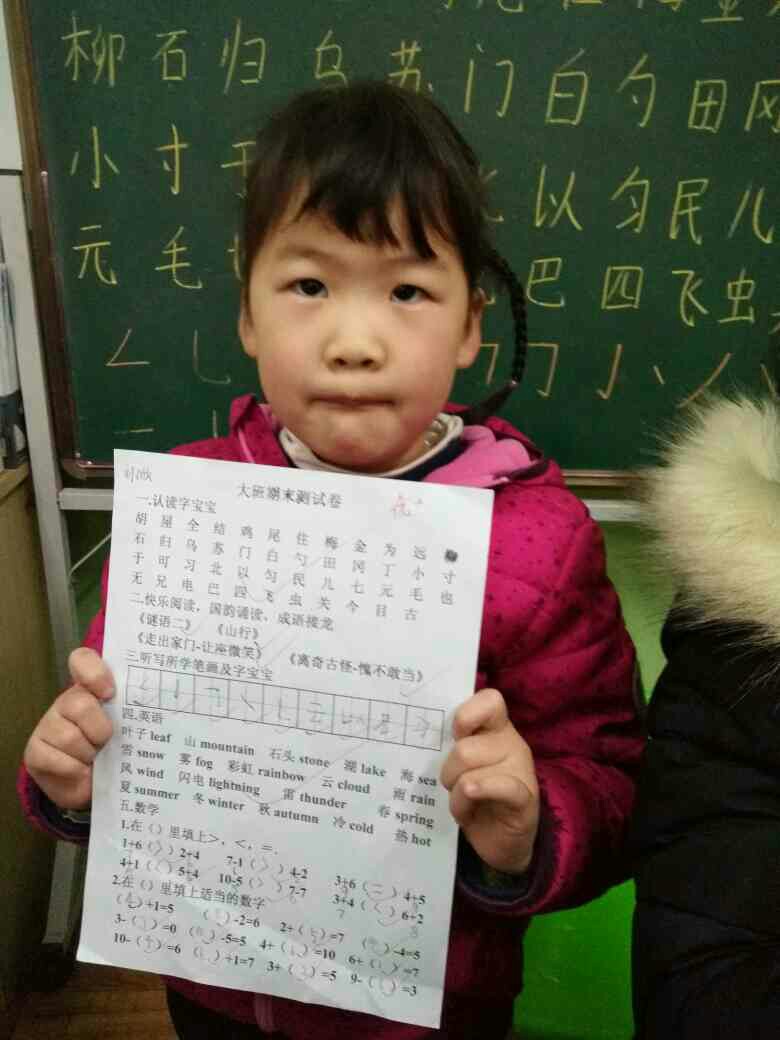 柳石归乌苏门白勺田冈
小寸于 以匀民儿
元毛 巴四飞虫
大班期末测试卷
优+
一.认读字宝宝
胡 屋 全 结 鸡 尾 住 梅 金 为 远
石 归 乌 苏 门 白 勺 田 冈 丁 小 寸
于 可 习 北 以 匀 民 儿 七 元 毛 也
无 兄 电 巴 四 飞 虫 关 今 目 古
二.快乐阅读，国韵诵读，成语接龙
《谜语二》 《山行》
《走出家门-让座微笑》 《离奇古怪-愧不敢当》
三.听写所学笔画及字宝宝
四.英语
叶子 leaf 山 mountain 石头 stone 湖 lake 海 sea
雪 snow 雾 fog 彩虹 rainbow 云 cloud 雨 rain
风 wind 闪电 lightning 雷 thunder 春 spring
夏 summer 冬 winter 秋 autumn 冷 cold 热 hot
五.数学
1.在（）里填上>，<，=.
1+6（>）2+4 7-1（>）4-2 3+6（=）4+5
4+1（<）5+4 10-5（>）7-7 3+4（<）6+2
2.在（）里填上适当的数字
（4）+1=5 （8）-2=6 2+（5）=7 （9）-4=5
3-（3）=0 （10）-5=5 4+（6）=10 6+（1）=7
10-（4）=6 （6）+1=7 3+（2）=5 9-（6）=3